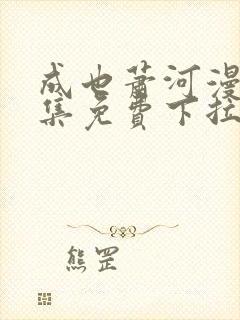 成也萧河漫
集免費下拉
熊罡